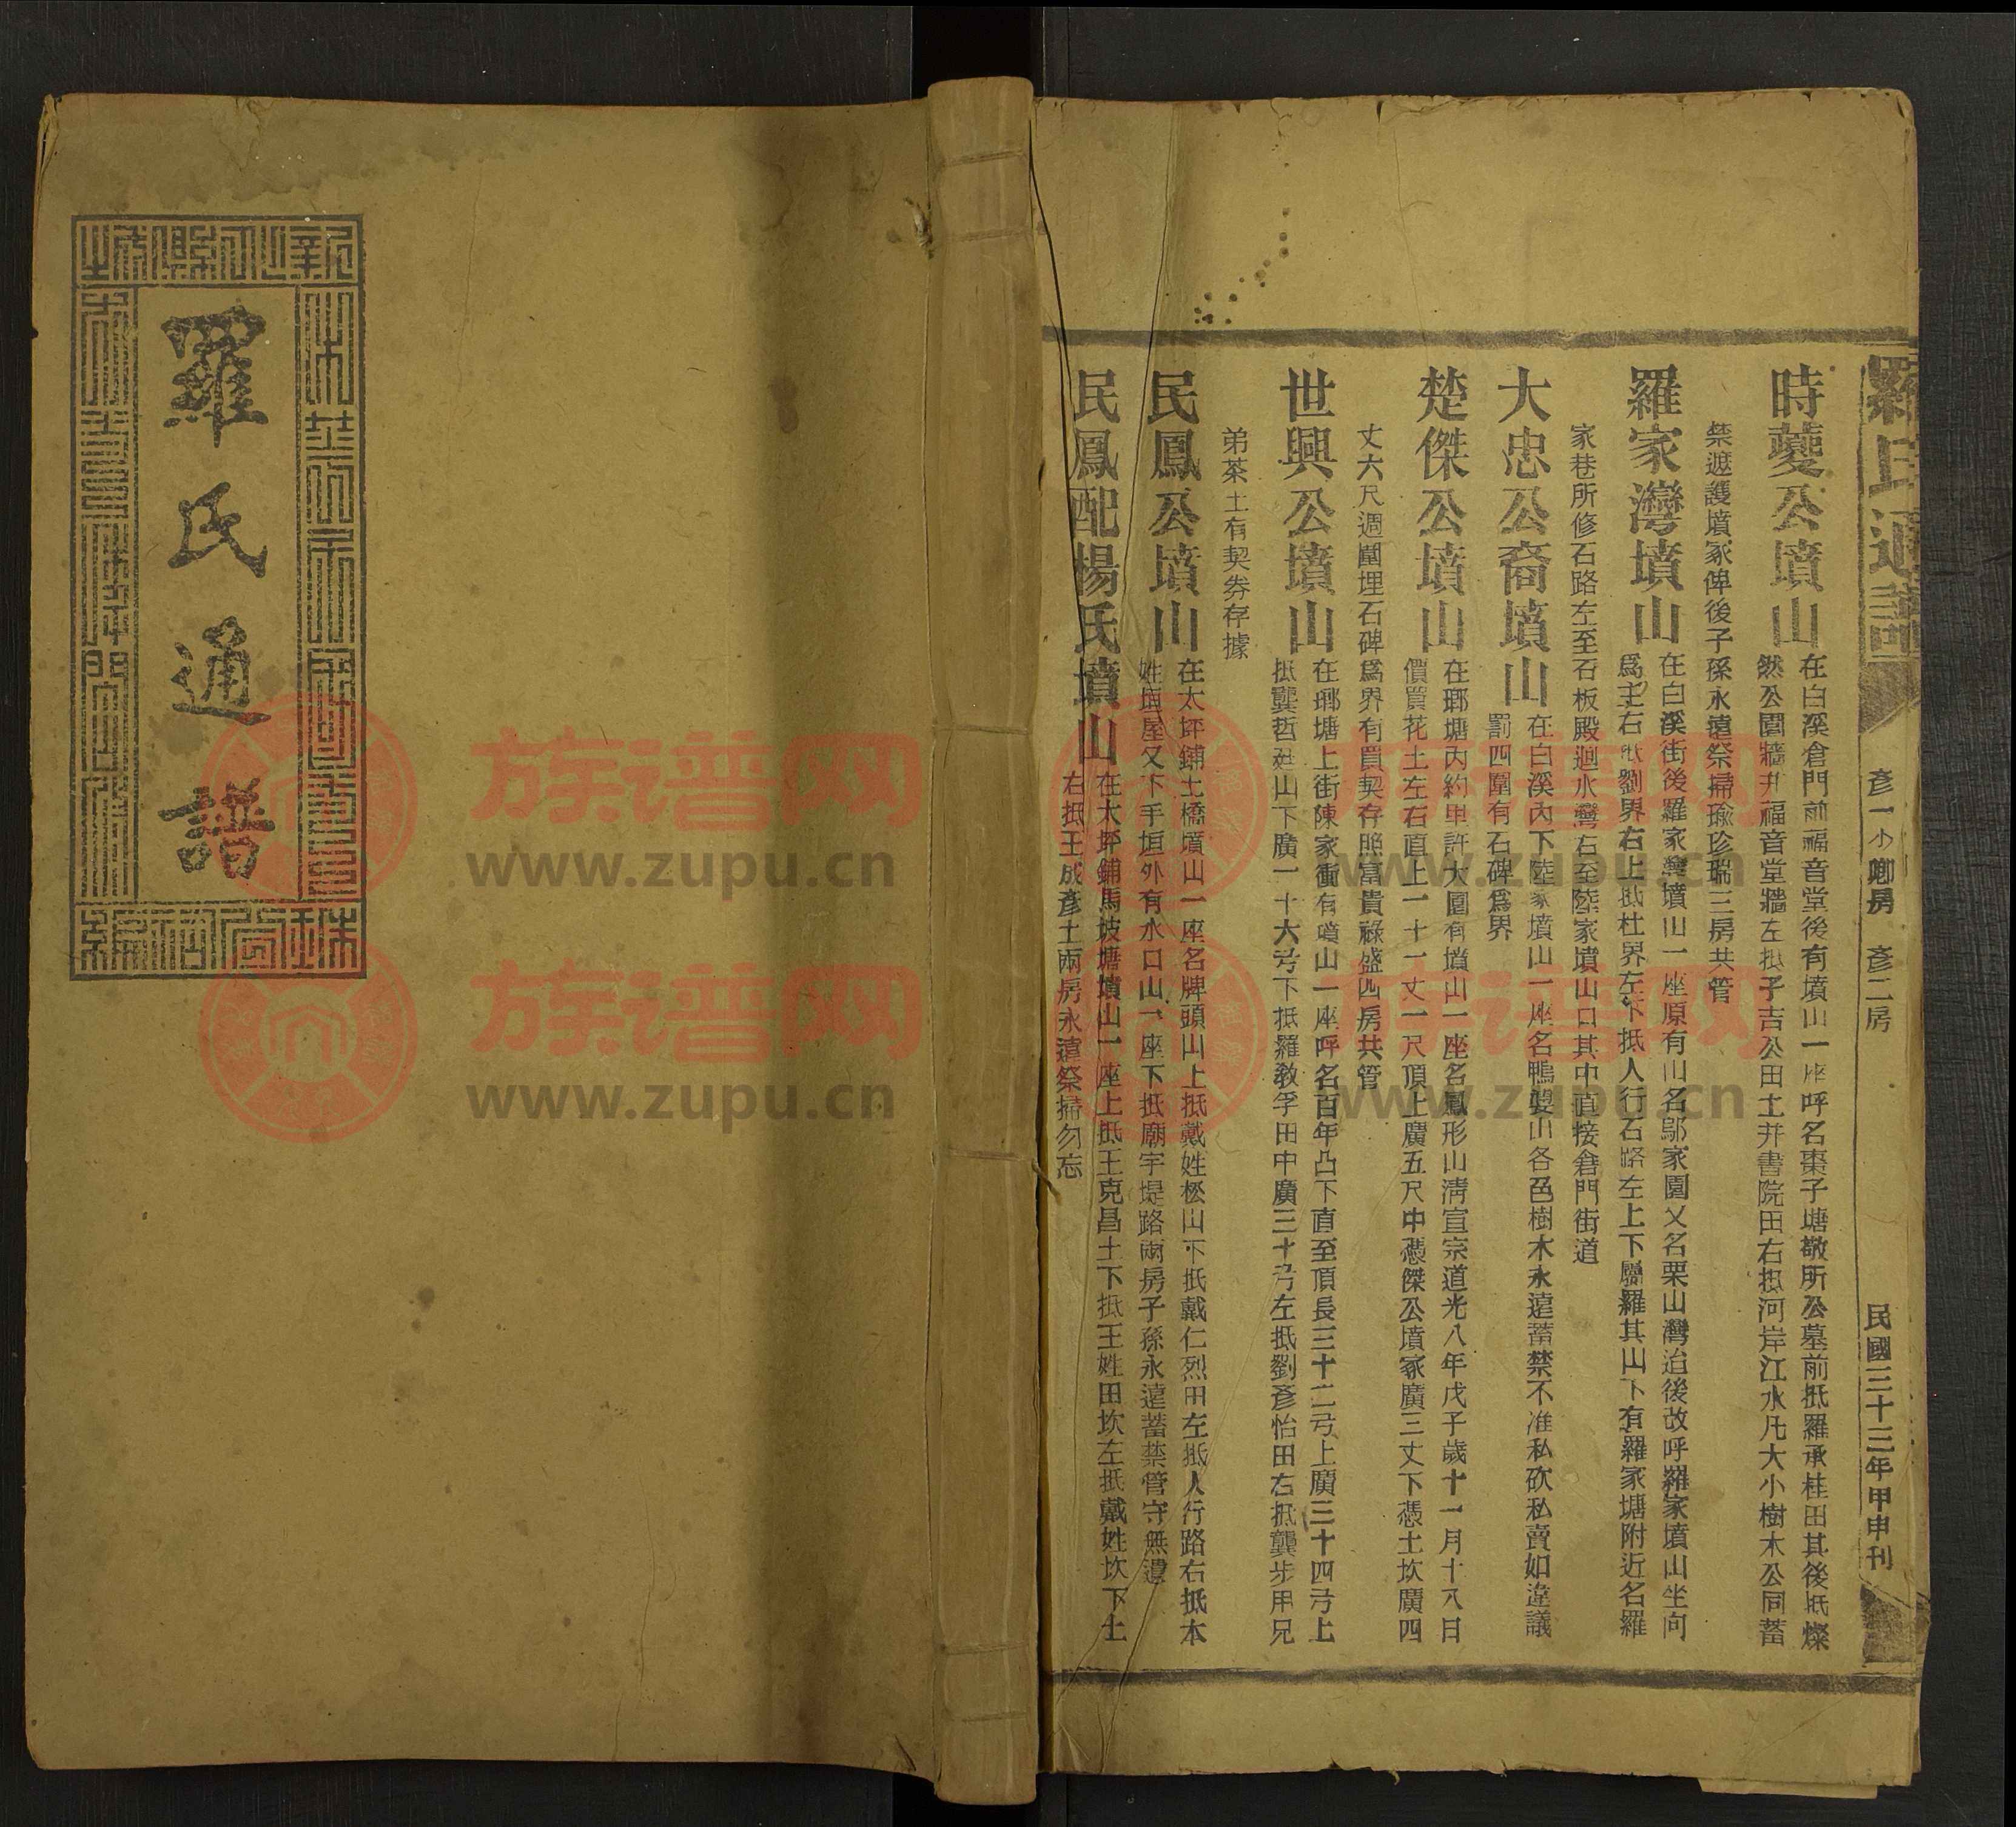 羅氏通譜
彥一小卿房　彥二房
民國三十三年甲申刊
時夔公墳山
在白溪倉門前福音堂後有墳山一座呼名棗子塘敬所公墓前抵羅承桂田其後抵燦
然公園牆井福音堂牆左抵子吉公田土并書院田右抵河岸江水凡大小樹木公同蓄
禁遮護墳冢俾後子孫永遠祭掃瑜珍瑞三房共管
羅家灣墳山
在白溪街後羅家灣墳山一座原有山名鄔家園又名栗山灣迨後故呼羅家墳山坐向
為主右抵劉界右上抵杜界左下抵人行石路左上下屬羅其山下有羅家塘附近名羅
家巷所修石路左至石板殿迴水灣右至陸家墳山口其中直接倉門街道
大忠公裔墳山
在白溪內下陸家墳山一座名鴨婆山各色樹木永遠蓄禁不准私砍私賣如違議
罰四圍有石碑為界
楚傑公墳山
在瑯塘內約車許大園有墳山一座名鳳形山淸宣宗道光八年戊子歲十一月十八日
價買花土左右直上一十一丈一尺頂上廣五尺中憑傑公墳冢廣三丈下憑土坎廣四
丈六尺週圍埋石碑為界有買契存照富貴祿盛四房共管
世興公墳山
在瑯塘上街陳家衝有墳山一座呼名百年凸下直至頂長三十二弓上廣三十四弓上
抵龔哲姓山下廣一十六弓下抵羅敎孚田中廣三十弓左抵劉彥怡田右抵龔步甲兄
弟茶土有契券存據
民鳳公墳山
在太坪鋪土橋墳山一座名牌頭山上抵戴姓松山下抵戴仁烈田左抵人行路右抵本
姓垣屋又下手垣外有水口山一座下抵廟宇堤路兩房子孫永遠蓄禁管守無遺
民鳳配楊氏墳山
在大坪鋪馬坡塘墳山一座上抵王克昌土下抵王姓田坎左抵戴姓坎下土
右抵王成彥土兩房永遠祭掃勿忘
羅氏通譜
族谱网
www.zupu.cn
族谱网
www.zupu.cn
www.zupu.cn
www.zupu.cn